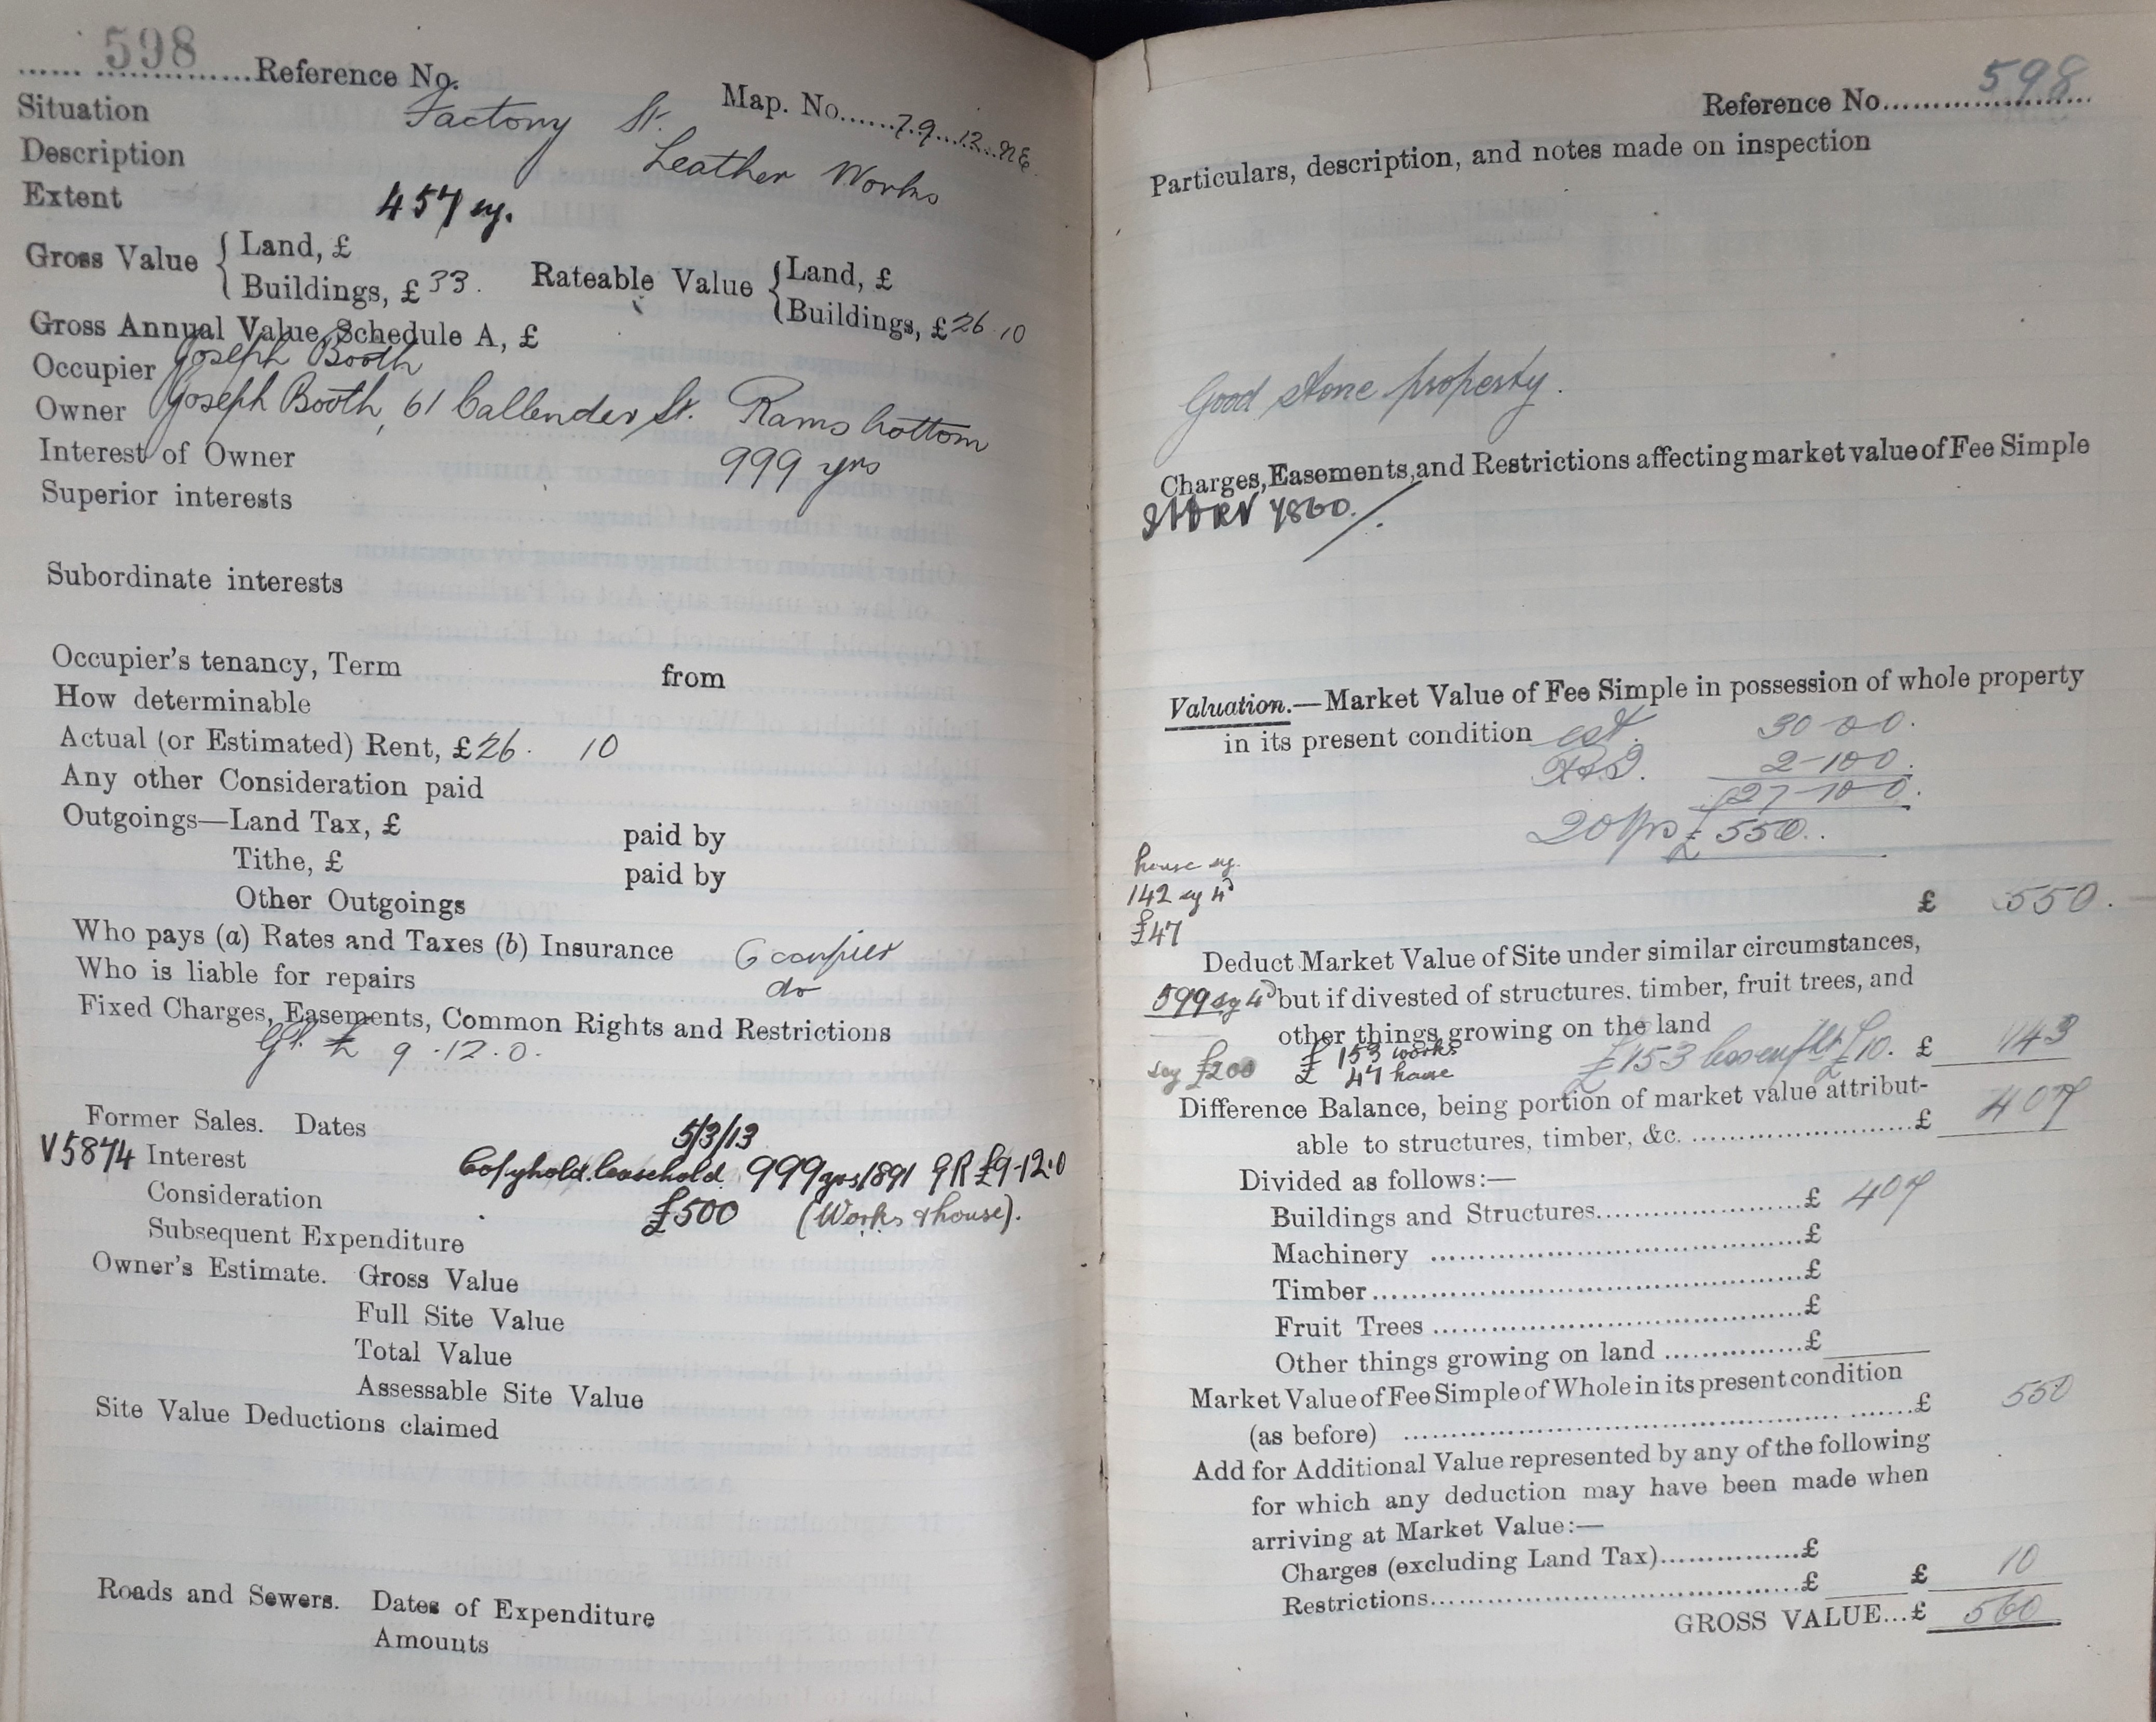 598
Reference No.
Map. No. 79.12.NE
Situation Factory St.
Description Leather Works
Extent 457 sy.
Gross Value { Land, £
Buildings, £ 33.
Rateable Value { Land, £
Buildings, £ 26 . 10
Gross Annual Value, Schedule A, £
Occupier Joseph Booth
Owner Joseph Booth, 61 Callender St. Ramsbottom
Interest of Owner 999 yrs
Superior interests
Subordinate interests
Occupier's tenancy, Term from
How determinable
Actual (or Estimated) Rent, £ 26. 10
Any other Consideration paid
Outgoings—Land Tax, £ paid by
Tithe, £ paid by
Other Outgoings
Who pays (a) Rates and Taxes (b) Insurance Occupier
Who is liable for repairs do
Fixed Charges, Easements, Common Rights and Restrictions
9 . 12 . 0.
Former Sales. Dates 5/3/13
V5874 Interest Copyhold leasehold 999 yrs 1891 GR £9-12.0
Consideration £500 (Works & house).
Subsequent Expenditure
Owner's Estimate. Gross Value
Full Site Value
Total Value
Assessable Site Value
Site Value Deductions claimed
Roads and Sewers. Dates of Expenditure
Amounts
Reference No. 598
Particulars, description, and notes made on inspection
Good stone property.
Charges, Easements, and Restrictions affecting market value of Fee Simple
Valuation.—Market Value of Fee Simple in possession of whole property
in its present condition est. 30-0-0.
2-10-0.
£27-10-0.
20 yrs £550.
house sy.
142 sy 4d
£47
£ 550.
Deduct Market Value of Site under similar circumstances,
599 sy 4d but if divested of structures, timber, fruit trees, and
other things growing on the land
say £200 £153 works £153 less £10. £ 143
£ 47 house
Difference Balance, being portion of market value attribut-
able to structures, timber, &c. £ 407
Divided as follows:—
Buildings and Structures £ 407
Machinery £
Timber £
Fruit Trees £
Other things growing on land £
Market Value of Fee Simple of Whole in its present condition
(as before) £ 550
Add for Additional Value represented by any of the following
for which any deduction may have been made when
arriving at Market Value:—
Charges (excluding Land Tax) £
Restrictions £ £ 10
GROSS VALUE...£ 560